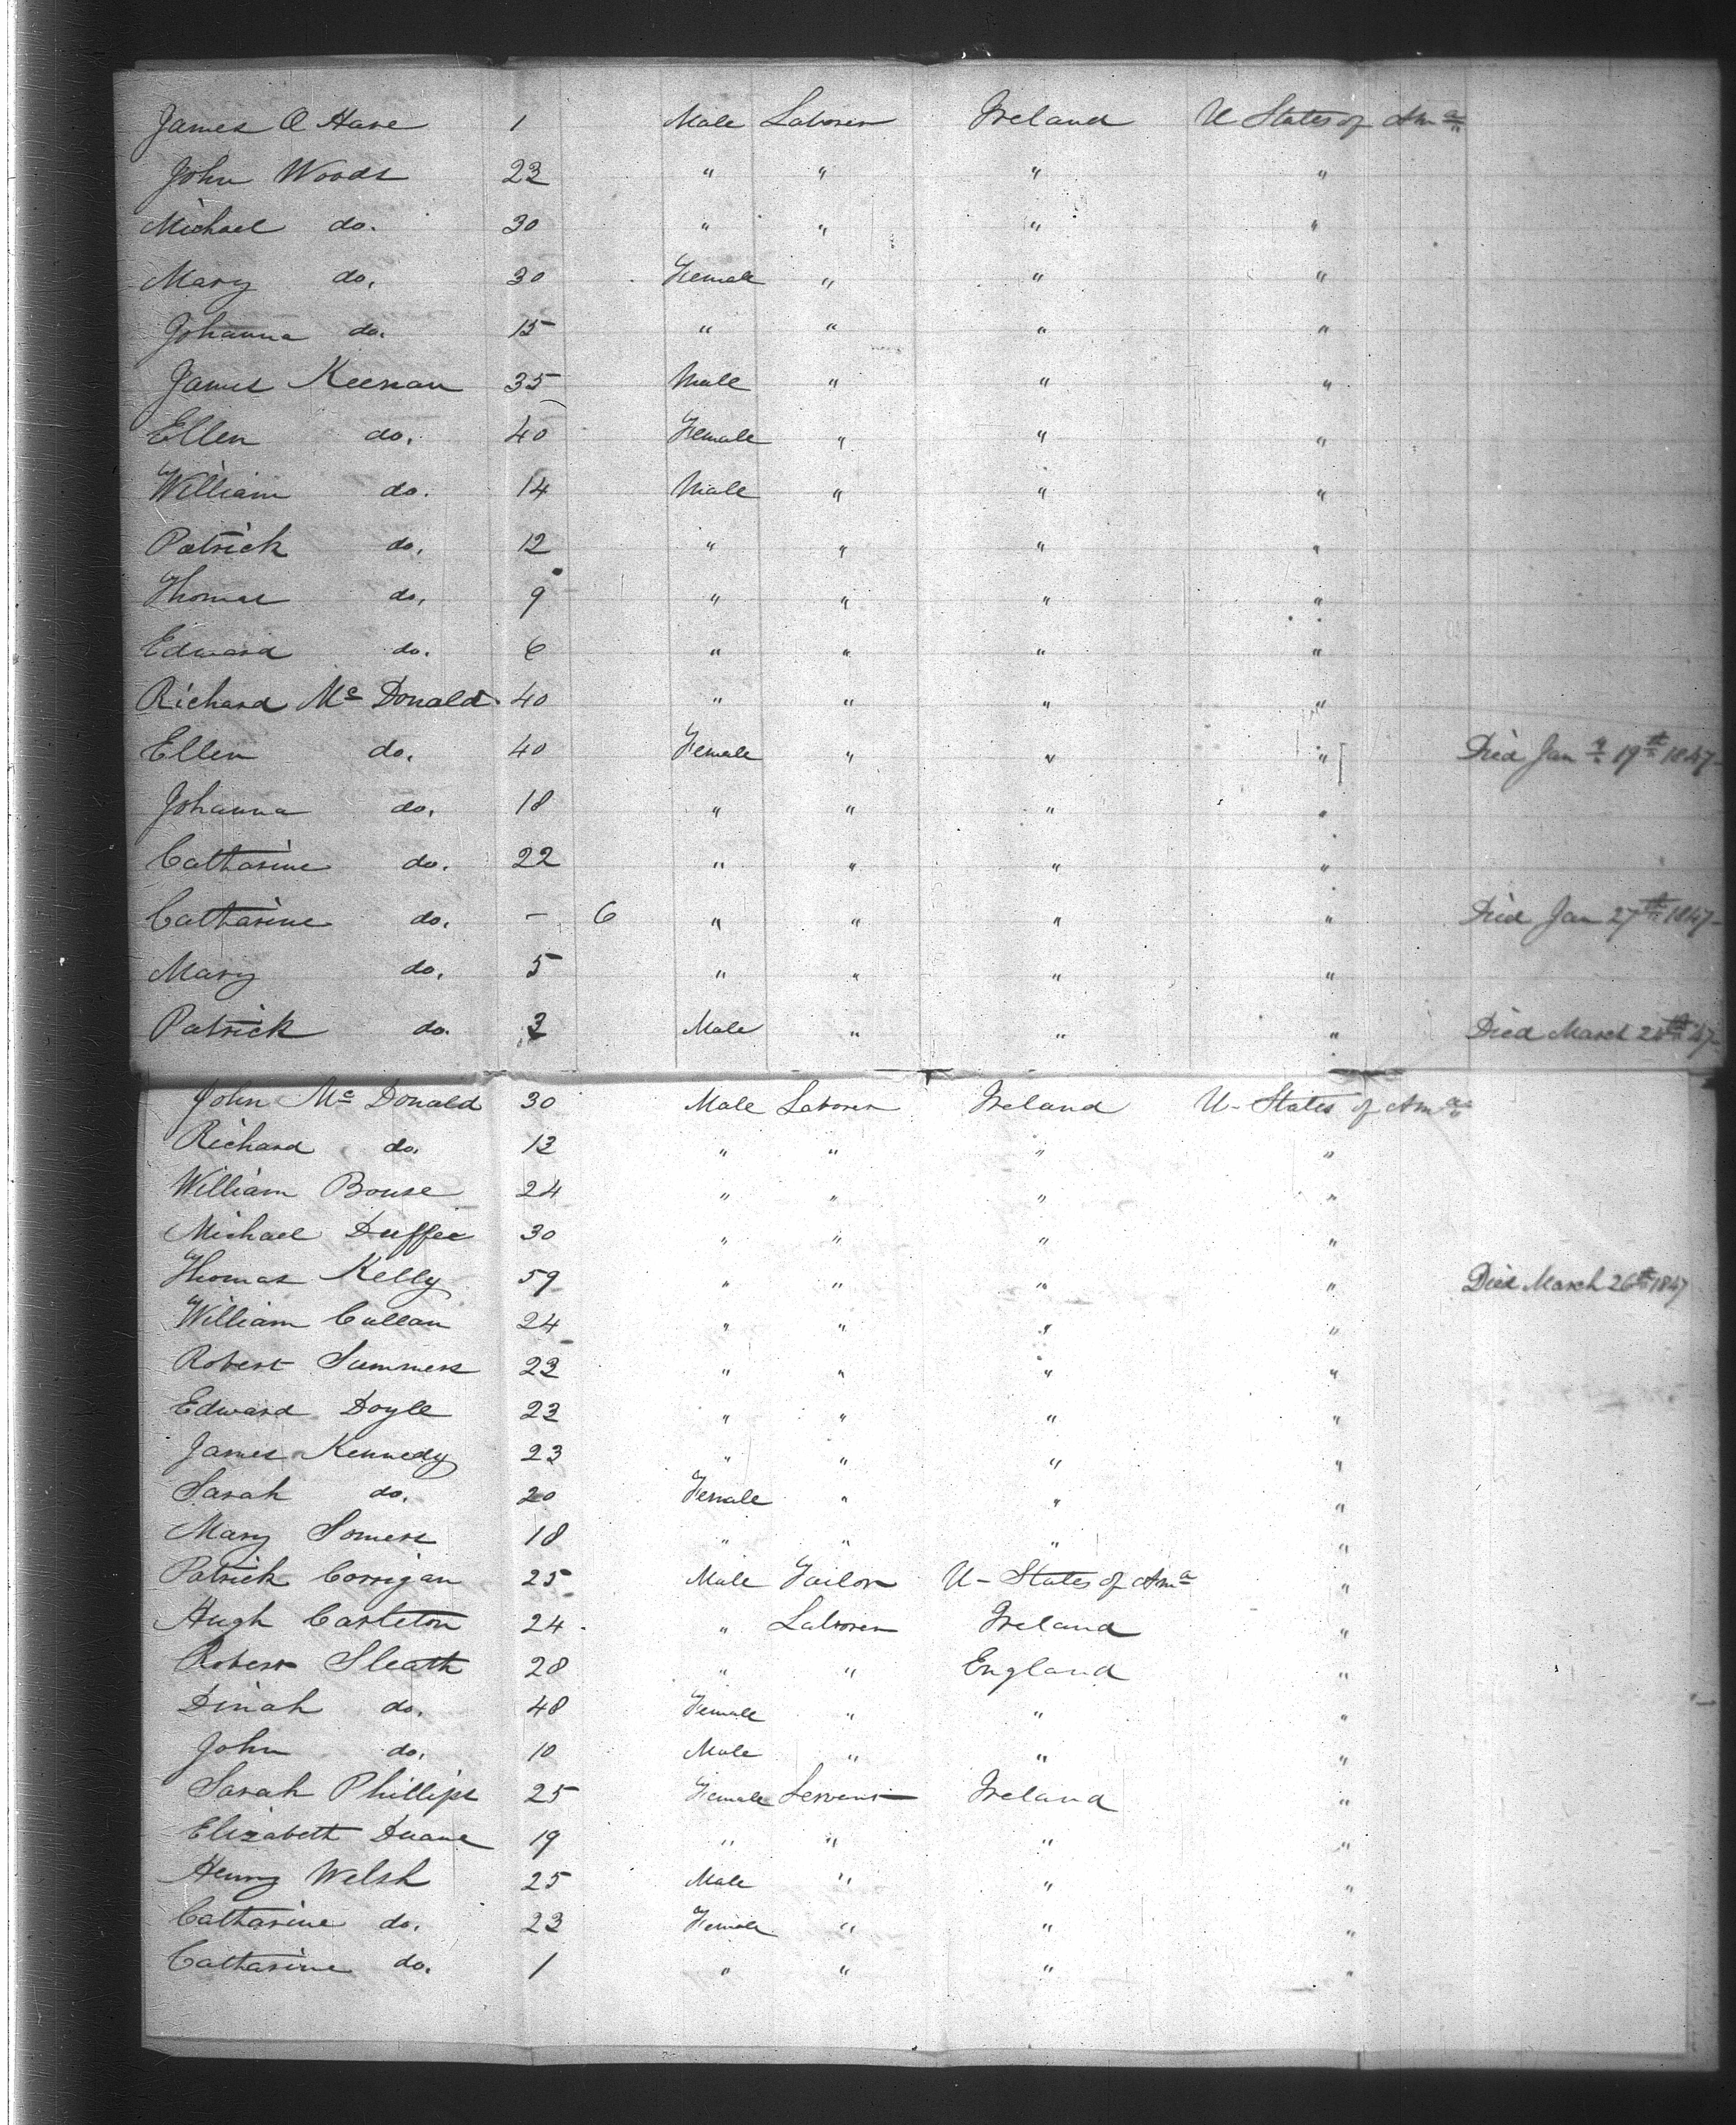 James O Hare 1 Male Laborer Ireland U States of Ama
John Woods 23 " " " "
Michael do. 30 " " " "
Mary do. 30 Female " " "
Johanna do. 15 " " " "
James Keenan 35 Male " " "
Ellen do. 40 Female " " "
William do. 14 Male " " "
Patrick do. 12 " " " "
Thomas do. 9 " " " "
Edward do. 6 " " " "
Richard Mc Donald 40 " " " "
Ellen do. 40 Female " " " Died Jany 19th 1847
Johanna do. 18 " " " "
Catharine do. 22 " " " "
Catharine do. - 6 " " " " Died Jan 27th 1847
Mary do. 5 " " " "
Patrick do. 3 Male " " " Died March '47
John Mc Donald 30 Male Laborer Ireland U- States of Ama
Richard do. 13 " " " "
William Bouse 24 " " " "
Michael Duffee 30 " " " "
Thomas Kelly 59 " " " " Died March 26th 1847
William Cullan 24 " " " "
Robert Summers 23 " " " "
Edward Doyle 23 " " " "
James Kennedy 23 " " " "
Sarah do. 20 Female " " "
Mary Somers 18 " " " "
Patrick Corrigan 25 Male Tailor U- States of Ama "
Hugh Carleton 24 " Laborer Ireland "
Robert Sleath 28 " " England "
Dinah do. 48 Female " " "
John do. 10 Male " " "
Sarah Phillips 25 Female Servant Ireland "
Elizabeth Duane 19 " " " "
Henry Welsh 25 Male " " "
Catharine do. 23 Female " " "
Catharine do. 1 " " " "